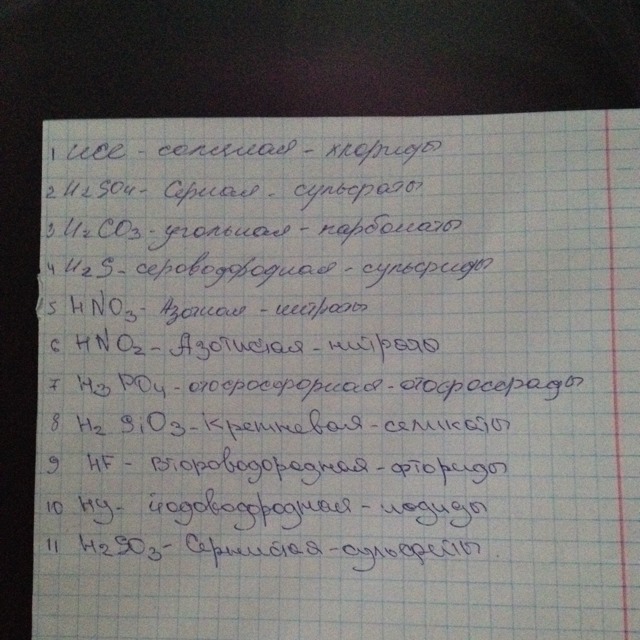 1 HCl - соляная - хлориды
2 H2SO4 - Серная - сульфаты
3 H2CO3 - угольная - карбонаты
4 H2S - сероводородная - сульфиды
5 HNO3 - Азотная - нитраты
6 HNO2 - Азотистая - нитриты
7 H3PO4 - отофосфорная - отофосфады
8 H2SiO3 - Кремневая - селикаты
9 HF - Второводородная - фториды
10 HJ - йодоводородная - иодиды
11 H2SO3 - Сернистая - сульфиты.